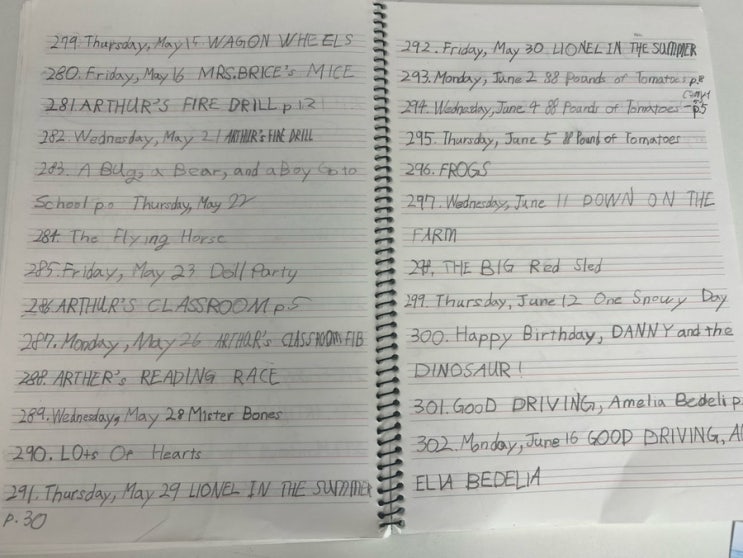 279. Thursday, May 15 WAGON WHEELS
280. Friday, May 16 MRS.BRICE'S MICE
281 ARTHUR'S FIRE DRILL p 12
282. Wednesday, May 21 ARTHUR'S FIRE DRILL
283. A Bug, a Bear, and a Boy Go to
School p. Thursday, May 22
284. The Flying Horse
285. Friday, May 23 Doll Party
286 ARTHUR'S CLASSROOM p 5
287. Monday, May 26 ARTHUR'S CLASSROOM FIB
288. ARTHER'S READING RACE
289. Wednesday, May 28 Mister Bones
290. LOts OF Hearts
291. Thursday, May 29 LIONEL IN THE SUMMER
P. 30
292. Friday, May 30 LIONEL IN THE SUMMER
293. Monday, June 2 88 Pounds of Tomatoes p.8
294. Wednesday, June 4 88 Pounds of Tomatoes - p5
295. Thursday, June 5 88 Pounds of Tomatoes
296. FROGS
297. Wednesday, June 11 DOWN ON THE
FARM
298. THE BIG Red Sled
299. Thursday, June 12 One Snowy Day
300. Happy Birthday, DANNY and the
DINOSAUR!
301. GOOD DRIVING, Amelia Bedeli p.
302. Monday, June 16 GOOD DRIVING, A
ELIA BEDELIA